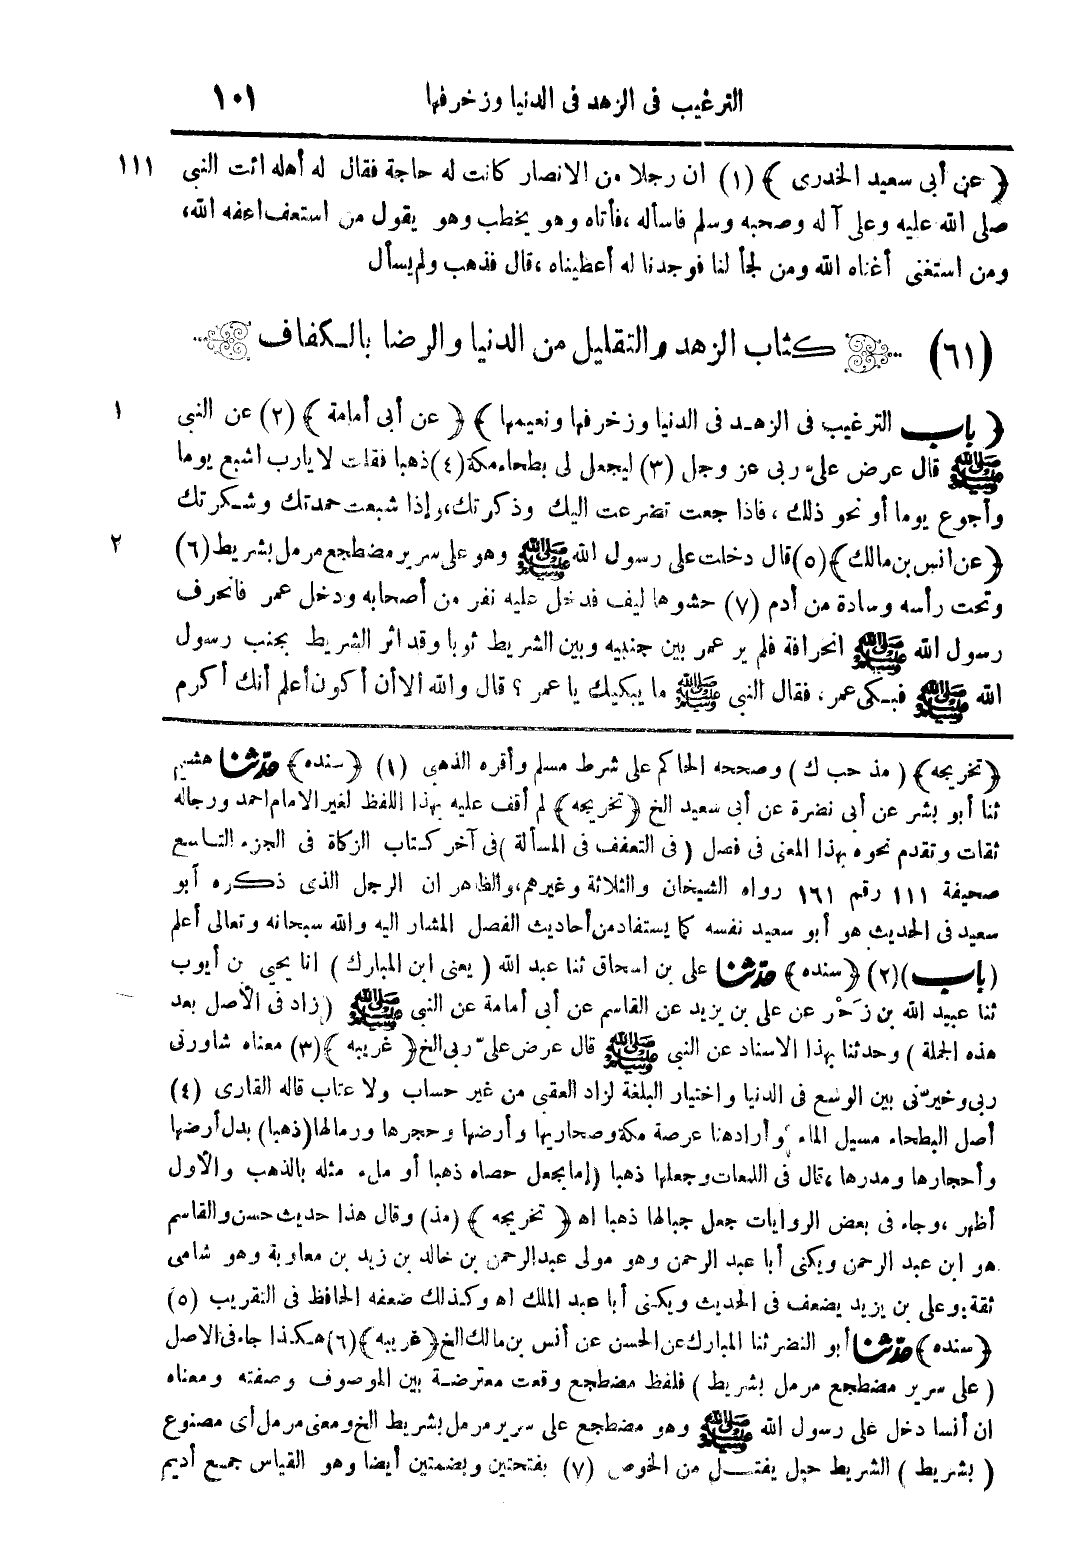 الترغيب فى الزهد فى الدنيا وزخرفها ١٠١
﴿ عن أبى سعيد الخدرى ﴾ (١) ان رجلا من الانصار كانت له حاجة فقال له أهله ائت النبى ١١١
صلى الله عليه وعلى آله وصحبه وسلم فاسأله ،فأتاه وهو يخطب وهو يقول من استعف اعفه الله،
ومن استغنى أغناه الله ومن لجأ لنا فوجدنا له أعطيناه ،قال فذهب ولم يسأل
(٦١) كتاب الزهد والتقليل من الدنيا والرضا بالكفاف
﴿ باب الترغيب فى الزهد فى الدنيا وزخرفها ونعيمها ﴾ ﴿ عن أبى أمامة ﴾ (٢) عن النبى ١
ﷺ قال عرض علىّ ربى عز وجل (٣) ليجعل لى بطحاء مكة (٤) ذهبا فقلت لا يارب اشبع يوما
وأجوع يوما أو نحو ذلك ، فاذا جعت تضرعت اليك وذكرتك،وإذا شبعت حمدتك وشكرتك
﴿عن انس بن مالك﴾ (٥) قال دخلت على رسول الله ﷺ وهو على سرير مضطجع مرمل بشريط (٦) ٢
وتحت رأسه وسادة من أدم (٧) حشوها ليف فدخل عليه نفر من أصحابه ودخل عمر فانحرف
رسول الله ﷺ انحرافة فلم ير عمر بين جنبيه وبين الشريط ثوبا وقد اثر الشريط بجنب رسول
الله ﷺ فبكى عمر ، فقال النبى ﷺ ما يبكيك يا عمر ؟ قال والله الا أن أكون أعلم أنك أكرم
﴿تخريجه﴾ ( مذ حب ك ) وصححه الحاكم على شرط مسلم وأقره الذهبى (١) ﴿سنده﴾ حدثنا هشيم
ثنا أبو بشر عن أبى نضرة عن أبى سعيد الخ ﴿تخريجه﴾ لم أقف عليه بهذا اللفظ لغير الامام احمد ورجاله
ثقات وتقدم نحوه بهذا المعنى فى فصل ( فى التعفف فى المسألة ) فى آخر كتاب الزكاة فى الجزء التاسع
صحيفة ١١١ رقم ١٦١ رواه الشيخان والثلاثة وغيرهم،والظاهر ان الرجل الذى ذكره أبو
سعيد فى الحديث هو أبو سعيد نفسه كما يستفاد من أحاديث الفصل المشار اليه والله سبحانه وتعالى أعلم
﴿باب﴾ (٢) ﴿سنده﴾ حدثنا على بن اسحاق ثنا عبد الله ( يعنى ابن المبارك ) انا يحيى بن أيوب
ثنا عبيد الله بن زَحْر عن على بن يزيد عن القاسم عن أبى أمامة عن النبى ﷺ (زاد فى الأصل بعد
هذه الجملة ) وحدثنا بهذا الاسناد عن النبى ﷺ قال عرض علىّ ربى الخ ﴿ غريبه ﴾ (٣) معناه شاورنى
ربى وخيرّنى بين الوسع فى الدنيا واختيار البلغة لزاد العقبى من غير حساب ولا عتاب قاله القارى (٤)
أصل البطحاء مسيل الماء وأراد هنا عرصة مكة وصحاريها وأرضها وحجرها ورمالها (ذهبا) بدل أرضها
وأحجارها ومدرها ،قال فى اللمعات وجعلها ذهبا (إما بجعل حصاه ذهبا أو ملء مثله بالذهب والأول
أظهر ،وجاء فى بعض الروايات جعل جبالها ذهبا اه ﴿ تخريجه ﴾ (مذ) وقال هذا حديث حسن والقاسم
هو ابن عبد الرحمن ويكنى أبا عبد الرحمن وهو مولى عبد الرحمن بن خالد بن زيد بن معاوية وهو شامى
ثقة،وعلى بن يزيد يضعف فى الحديث ويكنى أبا عبد الملك اه وكذلك ضعفه الحافظ فى التقريب (٥)
﴿سنده﴾ حدثنا أبو النضر ثنا المبارك عن الحسن عن أنس بن مالك الخ ﴿غريبه﴾ (٦) هكذا جاء فى الاصل
( على سرير مضطجع مرمل بشريط ) فلفظ مضطجع وقعت معترضة بين الموصوف وصفته ومعناه
ان أنسا دخل على رسول الله ﷺ وهو مضطجع على سرير مرمل بشريط الخ ومعنى مرمل أى مصنوع
( بشريط ) الشريط حبل يفتل من الخوص (٧) بفتحتين وبضمتين أيضا وهو القياس جمع أديم